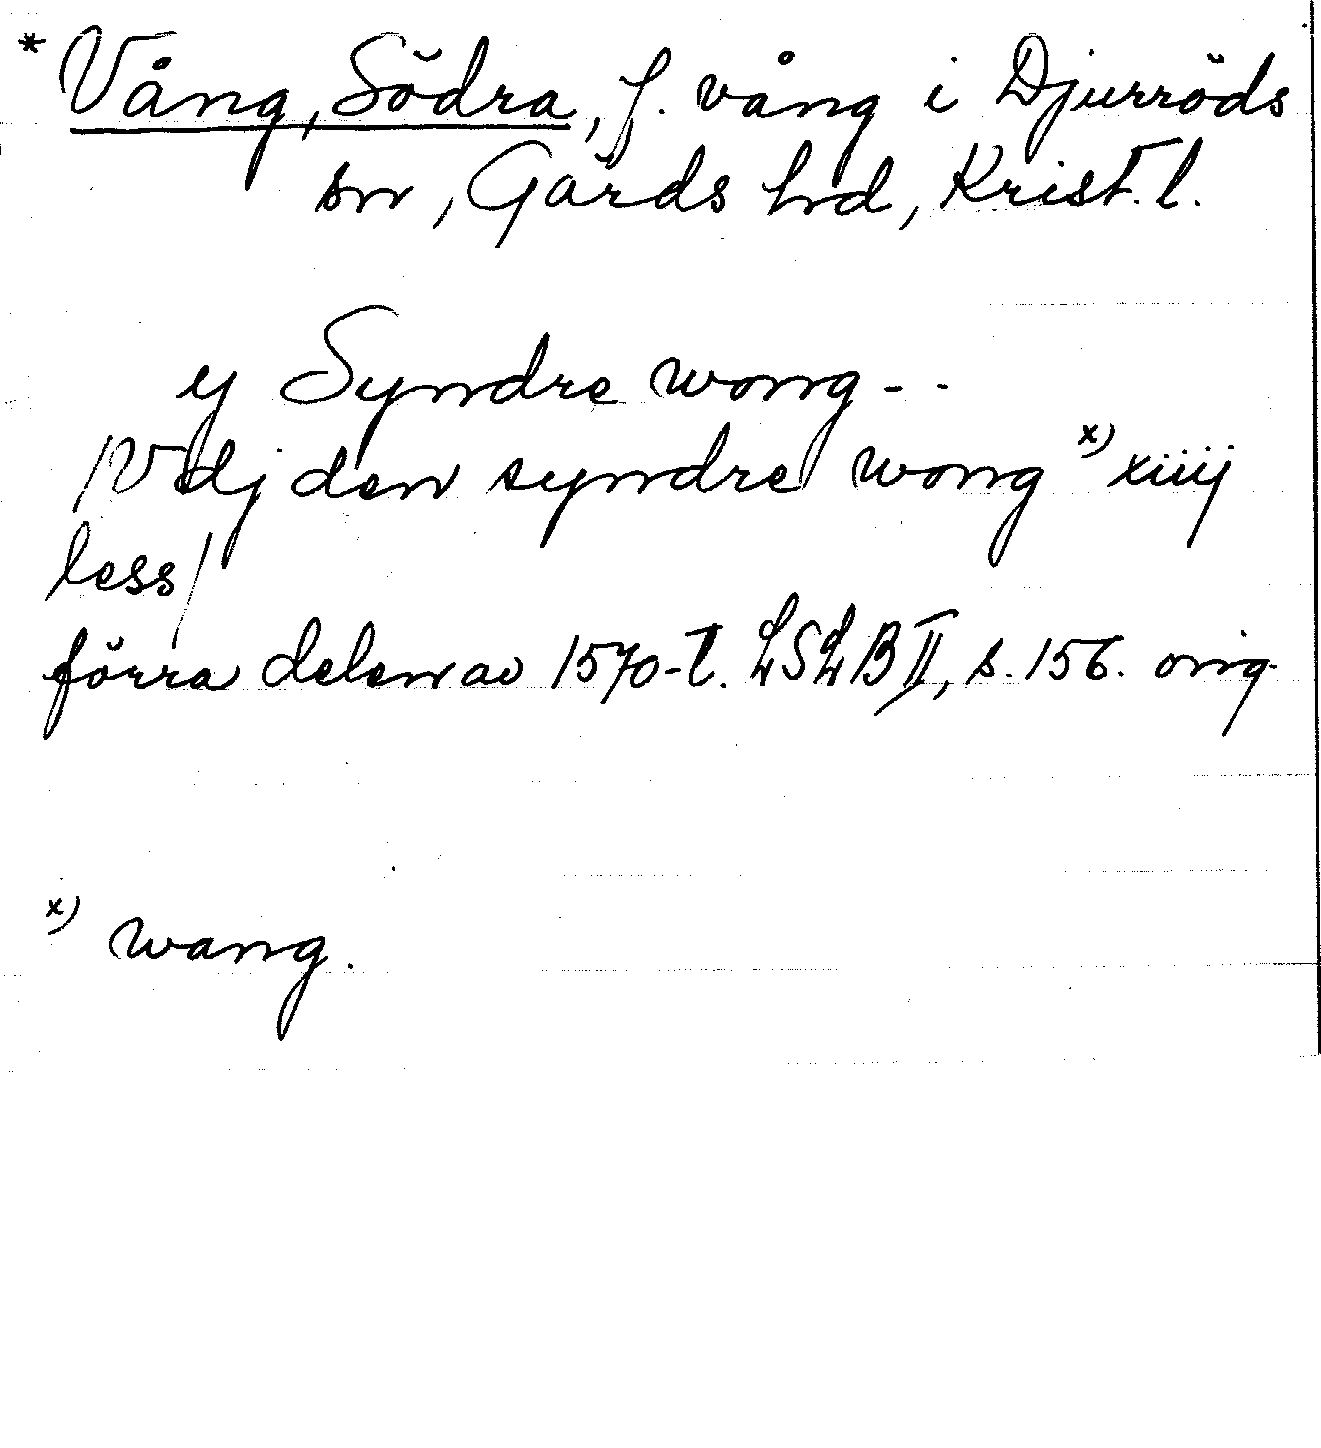 * Vång, Södra, f. vång i Djurröds
sn, Gärds hd, Krist. l.
ij Syndre wong - -
/Vdj den syndre wong x) xiiij
less/
förra delen av 1570-t. LSLB II, s. 156. orig.
x) wang.